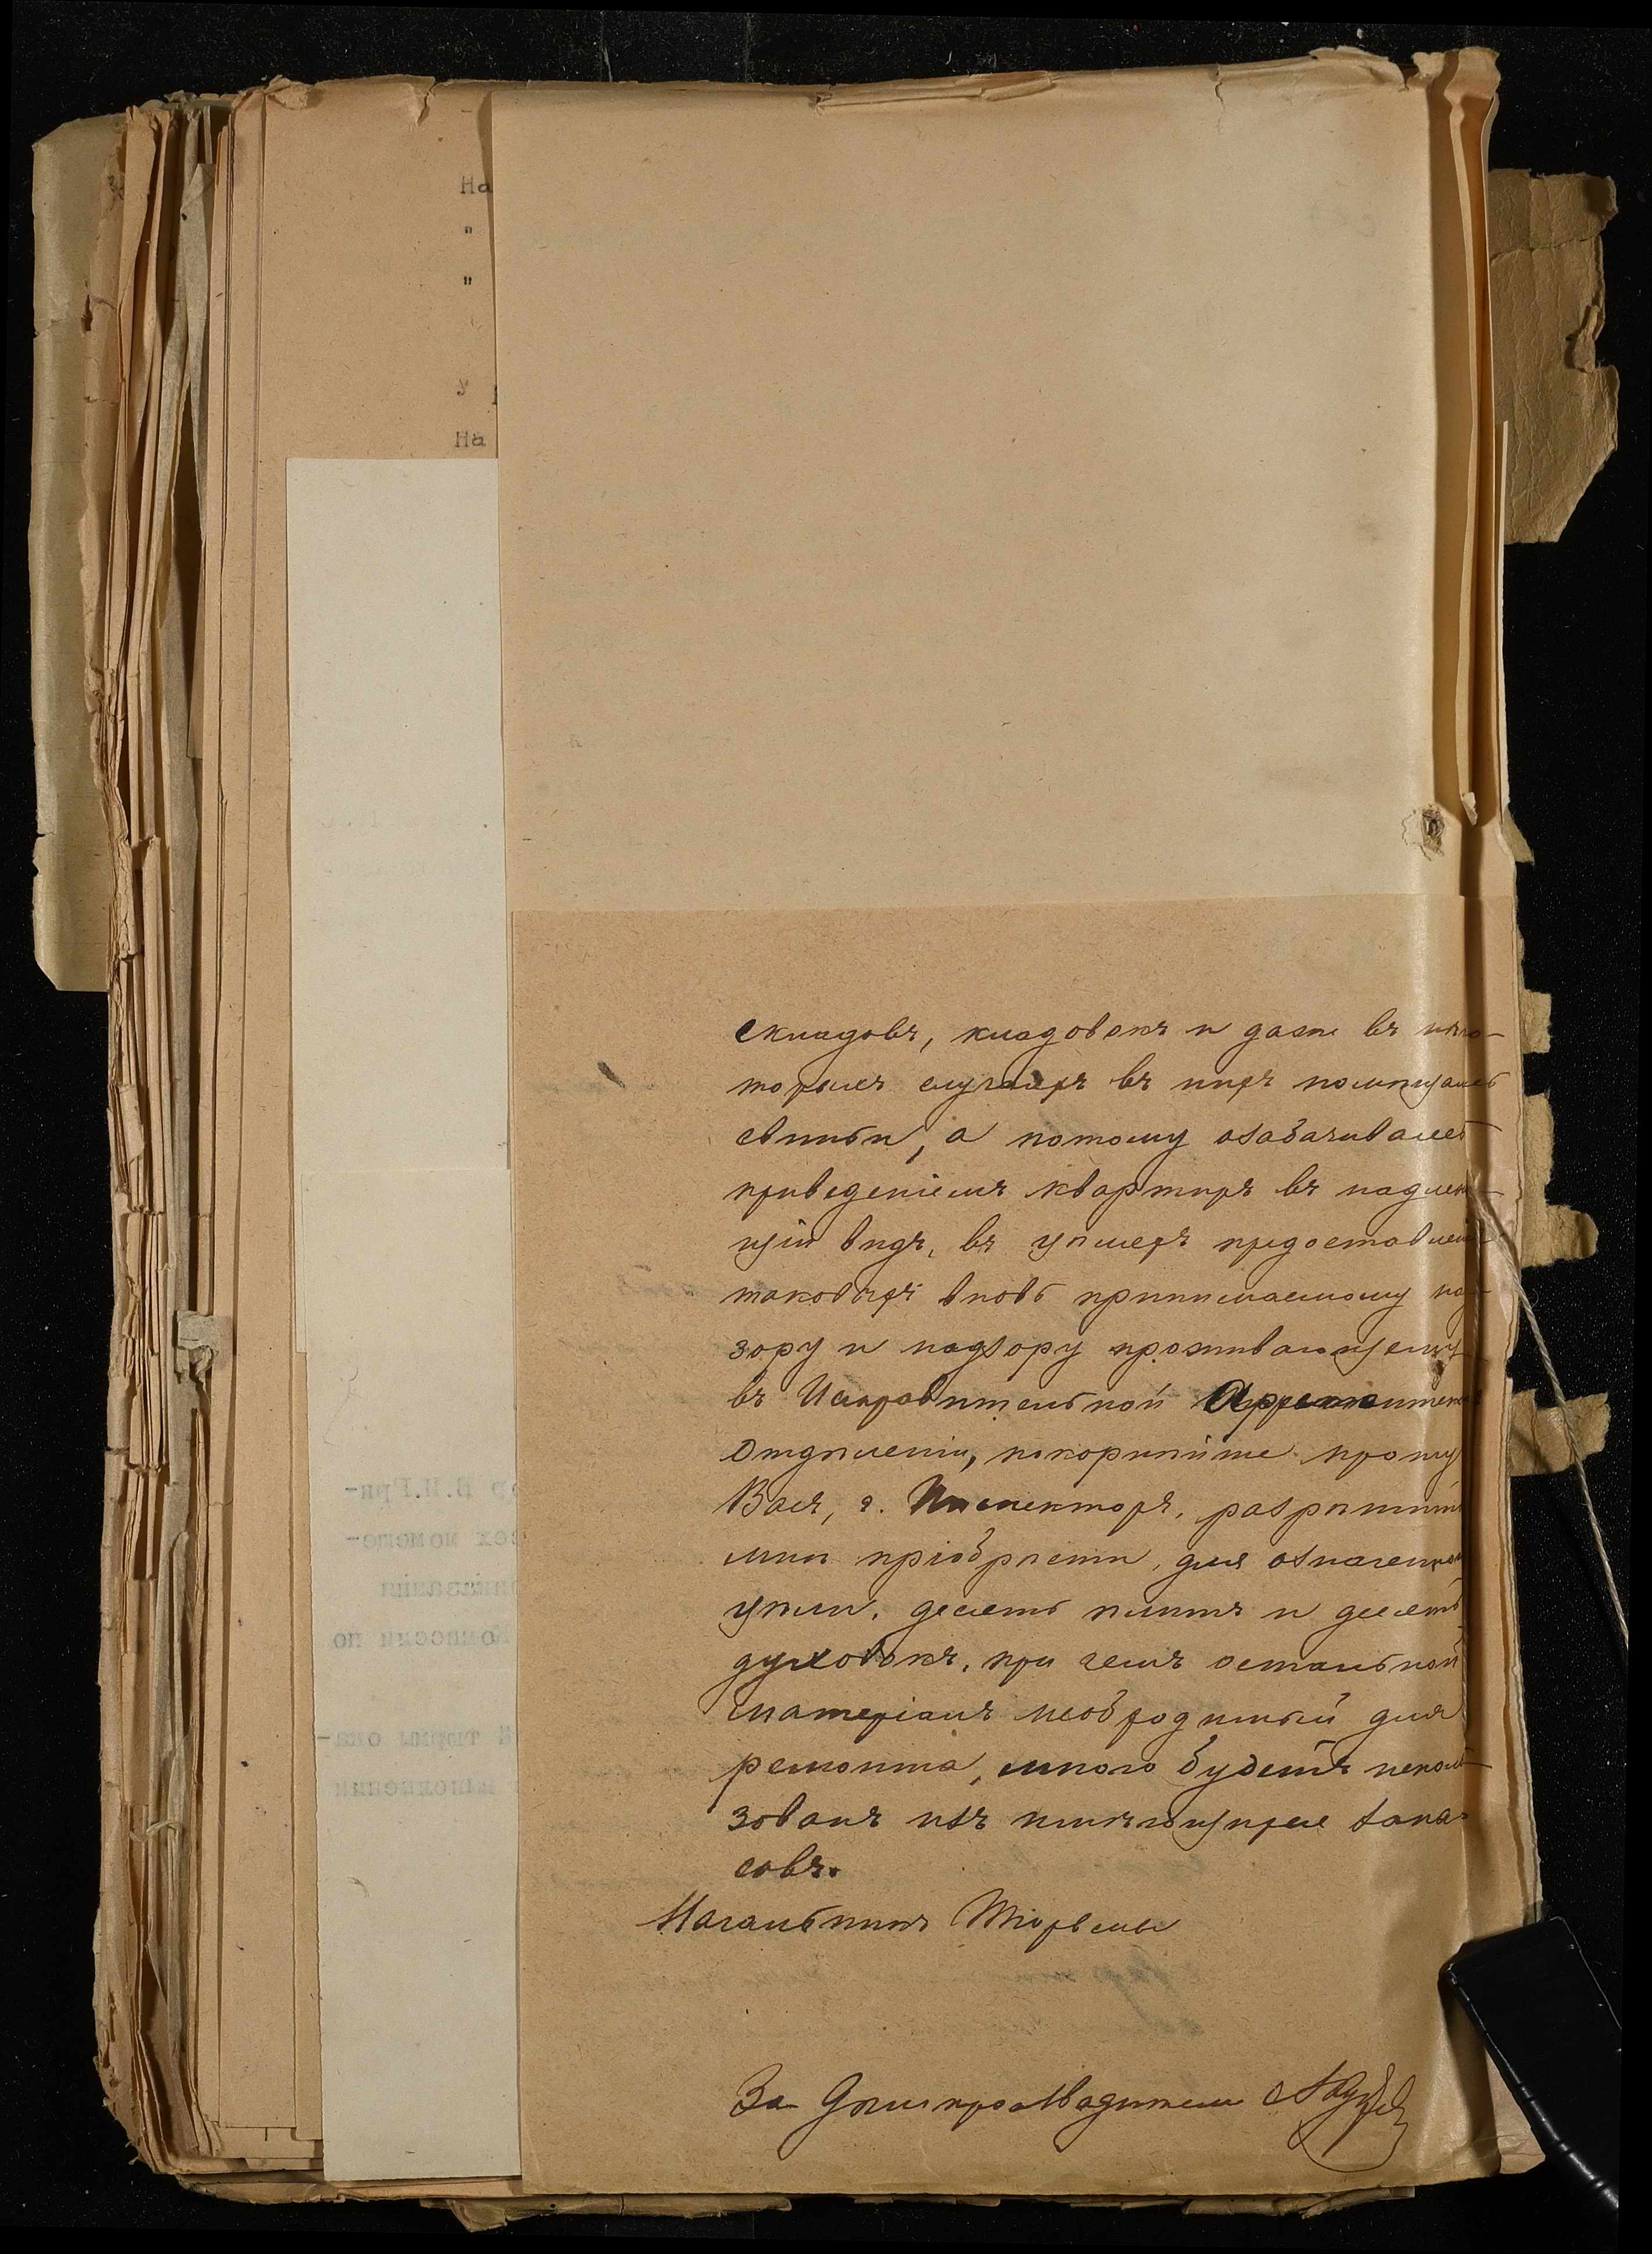 На
"
"
У
На
складовъ, кладовокъ и даже въ нѣко-
торыхъ случаяхъ въ нихъ помѣщались
свиньи, а потому озабачиваясь
приведеніемъ квартиръ въ надлежа-
щій видъ, въ цѣляхъ предоставленія
таковыхъ вновь принимаемому над-
зору и надзору проживающему
въ Исправительномъ Арестантскомъ
Отдѣленіи, покорнѣйше прошу
Васъ, г. Инспекторъ, разрѣшить
мнѣ пріобрѣсти, для означенной
цѣли, десять плитъ и десять
духовокъ, при чемъ остальной
матеріалъ необходимый для
ремонта, мною будетъ исполь-
зованъ изъ имѣющихся запа-
совъ.
Начальникъ Тюрьмы
За Дѣлопроизводителя